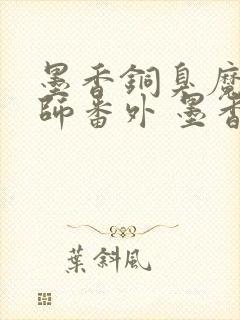 墨香銅臭魔
師番外 墨香
葉斜風